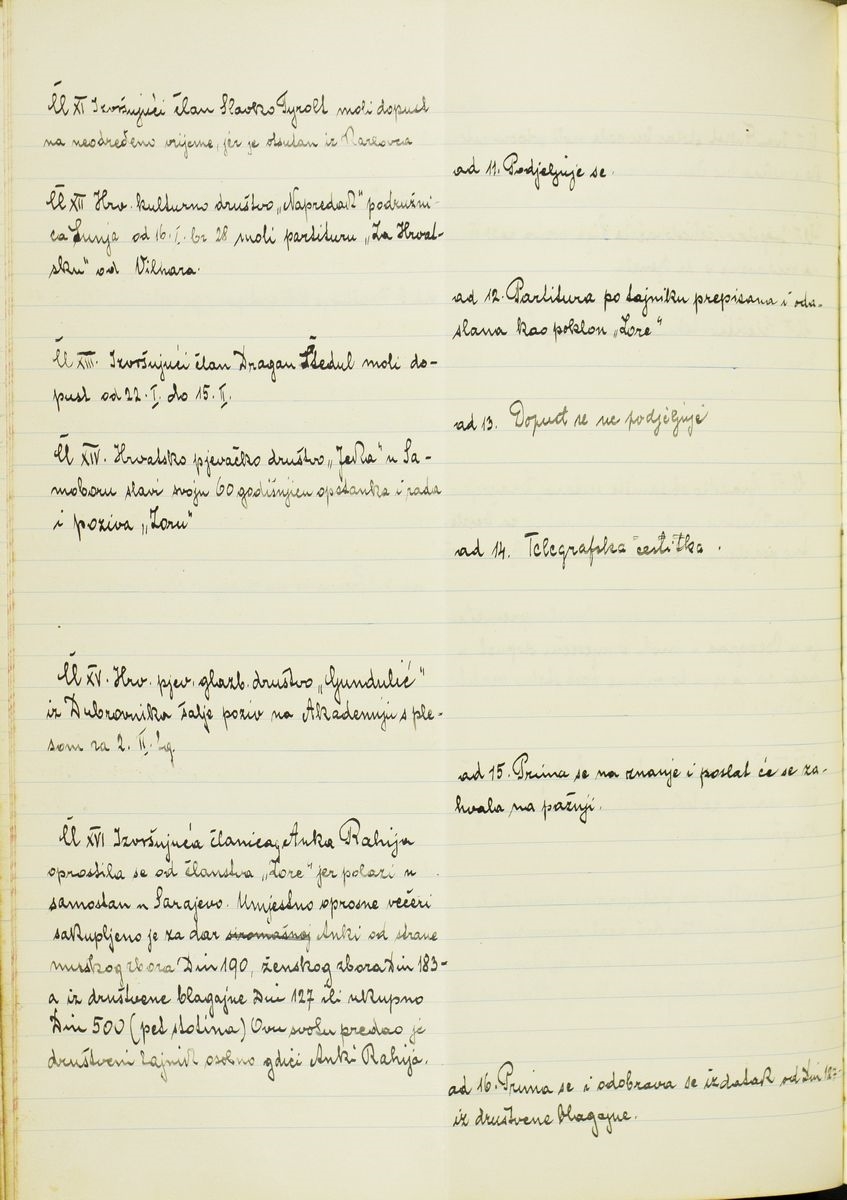 Čl XI Izvršujući član Slavko Tyrolt moli dopust
na neodređeno vrijeme, jer je otsutan iz Karlovca
ad 11. Podjeljuje se.
Čl XII Hrv. kulturno društvo „Napredak" podružni-
ca Sunja od 16. I. br 28 moli partituru „Za Hrvat-
sku" od Vilhara.
ad 12. Partitura po tajniku prepisana i oda-
slana kao poklon „Zore"
Čl XIII. Izvršujući član Dragan Štedul moli do-
pust od 22. I. do 15. II.
ad 13. Dopust se ne podjeljuje
Čl XIV. Hrvatsko pjevačko društvo „Jeka" u Sa-
moboru slavi svoju 60 godišnjicu opstanka i rada
i poziva „Zoru"
ad 14. Telegrafska čestitka.
Čl XV. Hrv. pjev. glazb. društvo „Gundulić"
iz Dubrovnika šalje poziv na Akademiju s ple-
som za 2. II.
ad 15. Prima se na znanje i poslat će se za-
hvala na pažnji.
Čl XVI Izvršujuća članica Anka Rahija
oprostila se od članstva „Zore" jer polazi u
samostan u Sarajevo. Umjestno oprosne večeri
sakupljeno je za dar siromašnoj Anki od strane
muškog zbora Din 190, ženskog zbora Din 183-
a iz društvene blagajne Din 127 ili ukupno
Din 500 (pet stotina) Ovu svotu predao je
društveni tajnik osobno gđici Anki Rahija.
ad 16. Prima se i odobrava se izdatak od Din 127-
iz društvene blagajne.